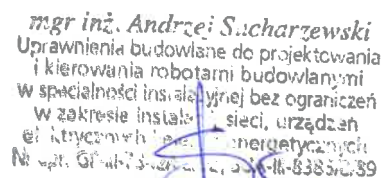 mgr inż. Andrzej Sucharzewski
Uprawnienia budowlane do projektowania
i kierowania robotami budowlanymi
w specjalności instalacyjnej bez ograniczeń
w zakresie instalacji, sieci, urządzeń
elektrycznych energetycznych